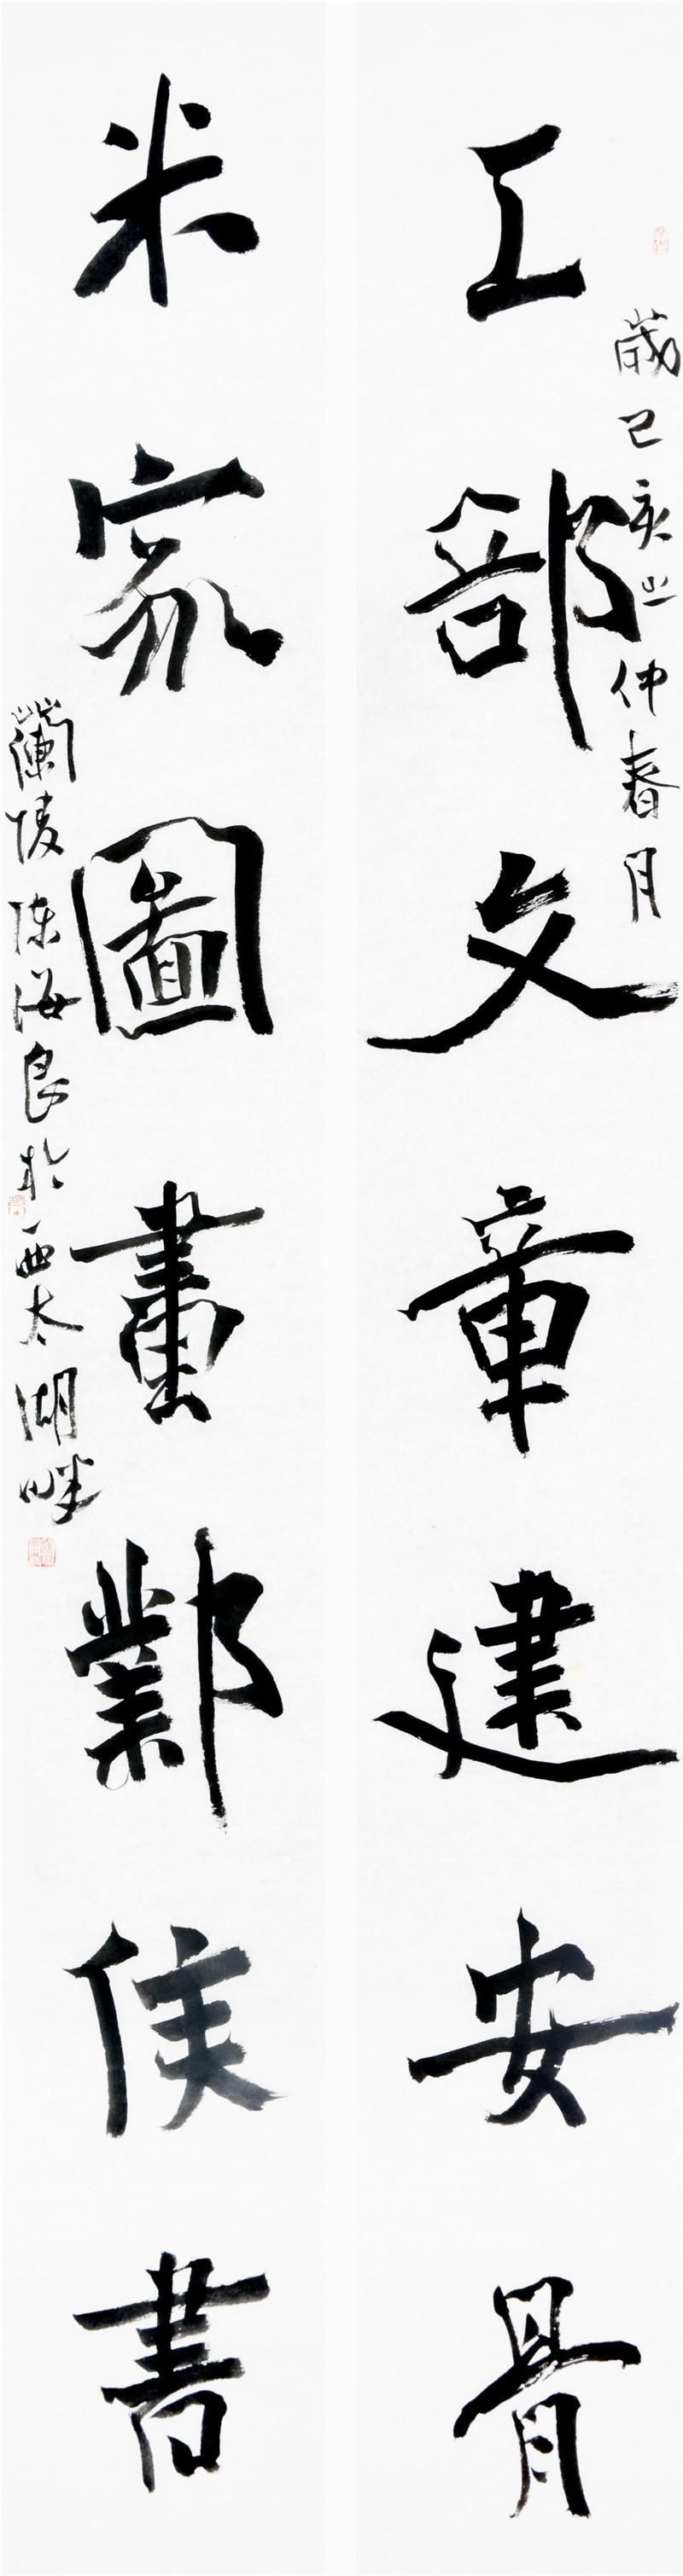 歲己亥之仲春月
工部文章建安骨
米家圖畫鄴侯書
蘭陵陈海良於西太湖畔